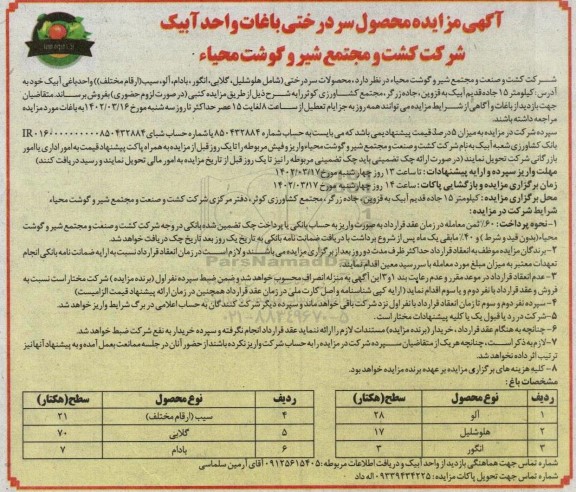 آگهی مزایده محصول سردرختی باغات واحد آبیک
شرکت کشت و مجتمع شیر و گوشت محیاء
شرکت کشت و صنعت و مجتمع شیر و گوشت محیاء در نظر دارد، محصولات سردرختی (شامل هلو شلیل، گلابی، انگور، بادام، آلو، سیب (ارقام مختلف)) واحد باغی آبیک خود به
آدرس: کیلومتر ۱۵ جاده قدیم آبیک به قزوین، جاده زرگر، مجتمع کشاورزی کوثر را به شرح ذیل از طریق مزایده کتبی (در صورت لزوم حضوری) بفروش برساند. متقاضیان
جهت بازدید از باغات و آگاهی از شرایط مزایده می توانند همه روزه به جز ایام تعطیل از ساعت ۸ لغایت ۱۵ عصر حداکثر تا روز سه شنبه مورخ ۱۴۰۲/۰۳/۱۶ به باغات مورد مزایده
مراجعه داشته باشند.
سپرده شرکت در مزایده به میزان ۵ درصد قیمت پیشنهادیمی باشد که می بایست به حساب شماره ۸۵۰۴۳۲۸۸۴ یا شماره حساب شبای IR۰۱۶۰۰۰۰۰۰۰۰۰۰۸۵۰۴۳۲۸۸۴
بانک کشاورزی شعبه آبیک به نام شرکت کشت و صنعت و مجتمع شیر و گوشت محیاء واریز و فیش مربوطه را تا یک روز قبل از مزایده به همراه پاکت پیشنهاد قیمت به امور اداری یا امور
بازرگانی شرکت تحویل نمایند (در صورت ارائه چک تضمینی باید چک تضمینی مربوطه را نیز تا یک روز قبل از تاریخ مزایده به امور مالی تحویل نمایند و رسید دریافت کنند)
مهلت واریز سپرده و ارایه پیشنهادات: تا ساعت ۱۳ روز چهارشنبه مورخ ۱۴۰۲/۰۳/۱۷
زمان برگزاری مزایده و بازگشایی پاکات: ساعت ۱۴ روز چهارشنبه مورخ ۱۴۰۲/۰۳/۱۷
محل برگزاری مزایده: کیلومتر ۱۵ جاده قدیم آبیک به قزوین، جاده زرگر، مجتمع کشاورزی کوثر، دفتر مرکزی شرکت کشت و صنعت و مجتمع شیر و گوشت محیاء
شرایط شرکت در مزایده:
۱- نحوه پرداخت: ۶۰٪ ثمن معامله در زمان عقد قرارداد به صورت واریز به حساب بانکی یا پرداخت چک تضمین شده بانکی در وجه شرکت کشت و صنعت و مجتمع شیر و گوشت
محیاء (بدون قید و شرط) و ۴۰٪ مابقی یک ماه پس از شروع برداشت با دریافت ضمانت نامه بانکی به تاریخ یک روز بعد تاریخ چک دریافت خواهد شد.
۲- برندگان مزایده موظف به انعقاد قرارداد حداکثر ظرف مدت دو روز بعد از برگزاری مزایده می باشند و لازم است در زمان انعقاد قرارداد نسبت به ارایه ضمانت نامه بانکی انجام
تعهدات معتبر به میزان مبلغ مورد معامله با سررسید معین اقدام نمایند.
۳- عدم انعقاد قرارداد در موعد مقرر و عدم رعایت بند (۱و۳) این آگهی به منزله انصراف محسوب خواهد شد و ضمن ضبط سپرده نفر اول (برنده مزایده) شرکت مختار است نسبت به
فروش و عقد قرارداد با نفر دوم و یا سوم اقدام نماید (ارایه کپی شناسنامه و اصل کارت ملی در زمان عقد قرارداد همچنین در زمان ارائه پیشنهاد قیمت الزامیست)
۴- سپرده نفر دوم و سوم تا زمان انعقاد قرارداد با نفر اول نزد شرکت باقی خواهد ماند و سپرده دیگر شرکت کنندگان به حساب اعلامی در برگ شرایط واریز خواهد شد.
۵- شرکت در رد یا قبول یک یا کلیه پیشنهادات مختار است.
۶- چنانچه به هنگام عقد قرارداد، خریدار (برنده مزایده) مستندات لازم را ارائه ننماید عقد قرارداد انجام نگرفته و سپرده خریدار به نفع شرکت ضبط خواهد شد.
۷- لازم به ذکر است، چنانچه هر یک از متقاضیان سپرده شرکت در مزایده را به حساب شرکت واریز نکرده باشند از حضور آنان در جلسه ممانعت بعمل آمده و به پیشنهاد آنها نیز
ترتیب اثر داده نخواهد شد.
۸- کلیه هزینه های برگزاری مزایده بر عهده برنده مزایده خواهد بود.
مشخصات باغ:
ردیف نوع محصول سطح (هکتار) ردیف نوع محصول سطح (هکتار)
۱ آلو ۲۸ ۴ سیب (ارقام مختلف) ۲۱
۲ هلو شلیل ۱۷ ۵ گلابی ۷۰
۳ انگور ۳ ۶ بادام ۷
شماره تماس جهت هماهنگی بازدید از واحد آبیک و دریافت اطلاعات مربوطه: ۰۹۱۲۵۶۱۵۴۰۵ آقای آرمین سلماسی
شماره تماس جهت تحویل پاکات مزایده: ۰۹۳۳۹۴۳۴۲۲۵ اله داد
ParsNamadData
۰۲۱-۸۸۳۴۹۶۷۰-۵